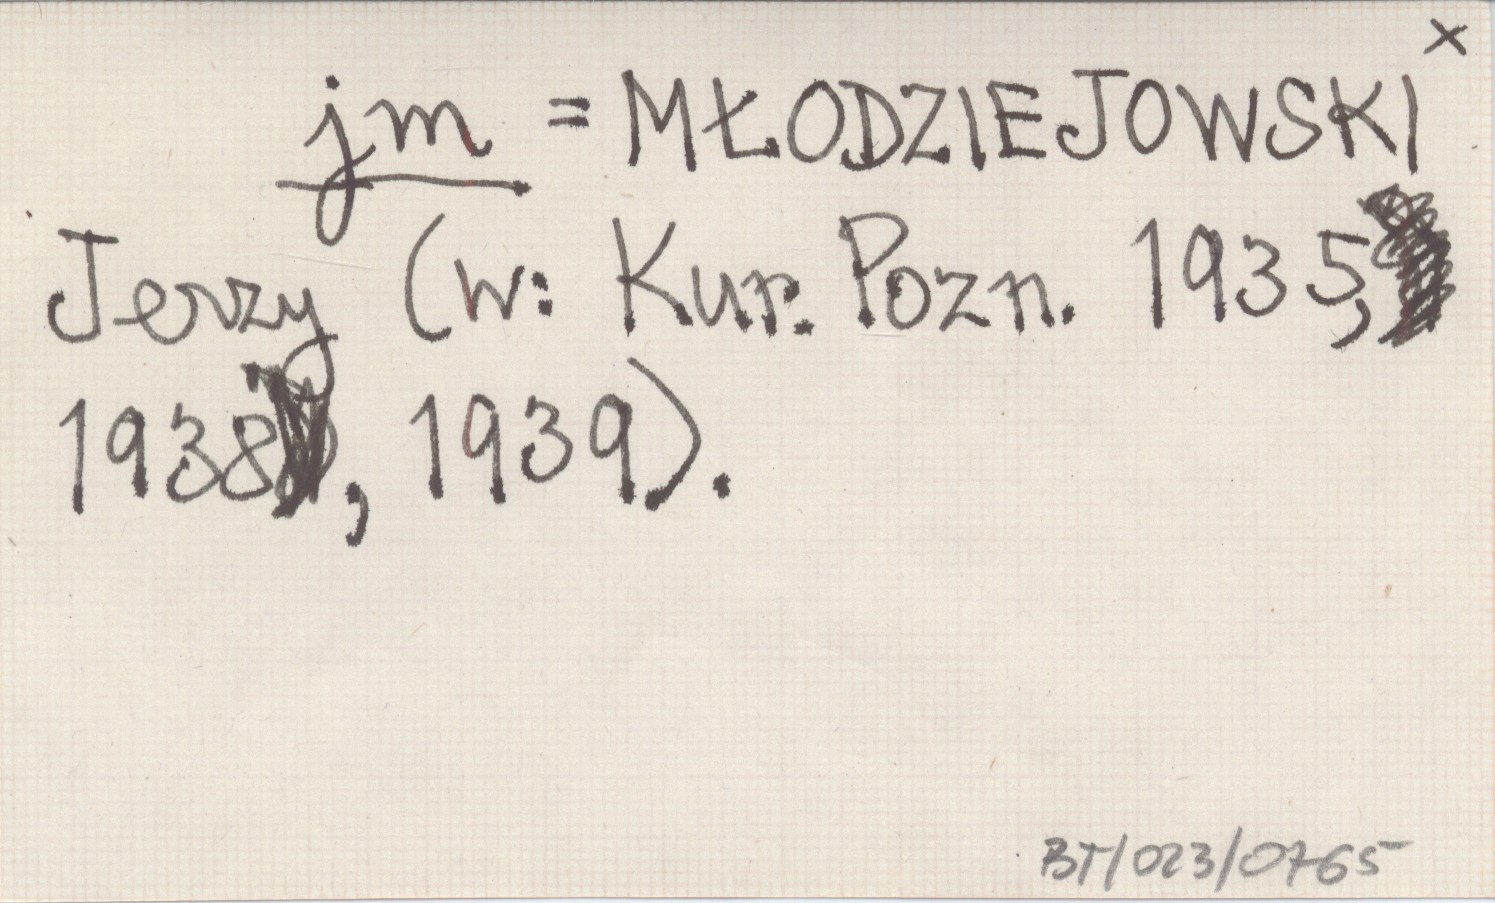 x
jm = MŁODZIEJOWSKI
Jerzy (w: Kur. Pozn. 1935,
1938, 1939).
BT/023/0765